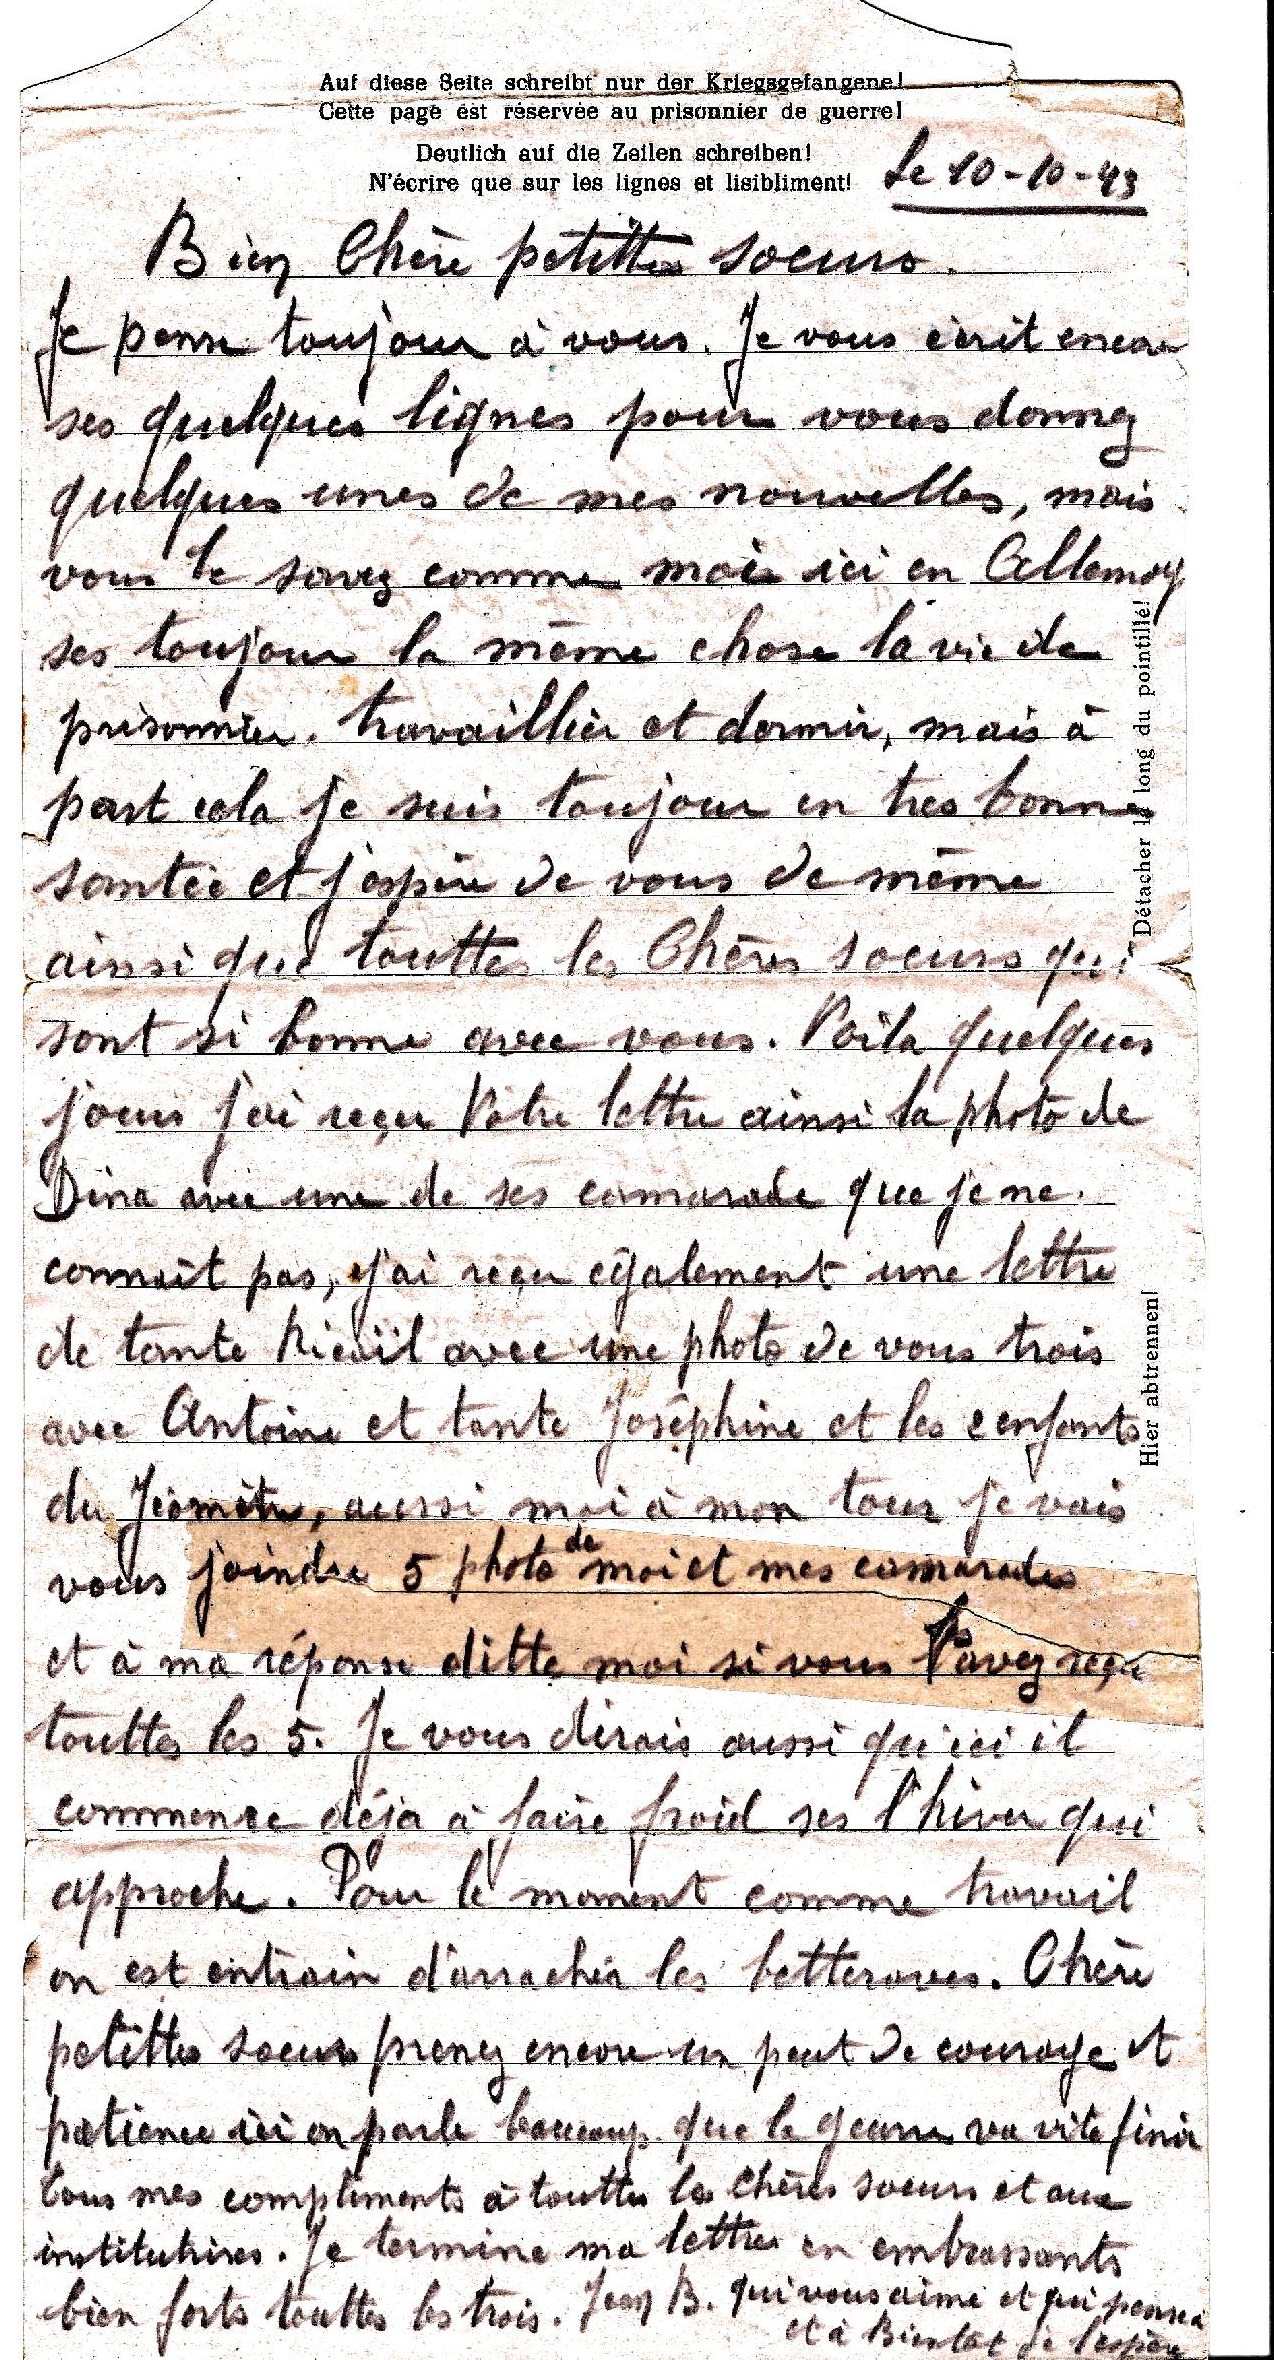 Auf diese Seite schreibt nur der Kriegsgefangene!
Cette page est réservée au prisonnier de guerre!
Deutlich auf die Zeilen schreiben!
N'écrire que sur les lignes et lisibliment!
Le 10-10-43
Bien Chère petittes soeurs.
Je pense toujour à vous. Je vous écrit encore
ses quelques lignes pour vous donnez
quelques unes de mes nouvelles, mais
vous le savez comme moi ici en Allemag
ses toujour la même chose la vie de
prisonnier. travaillier et dormir, mais à
part cela je suis toujour en tres bonne
santée et j'espère de vous de même
ainsi que touttes les Chères soeurs qui
sont si bonne avec vous. Voila quelques
jours j'ai reçu Votre lettre ainsi la photo de
Dina avec une de ses camarade que je ne
connait pas, j'ai reçu également une lettre
de tante avec une photo de vous trois
avec Antoine et tante Joséphine et les 2 enfants
du Jéomètre, aussi moi à mon tour je vais
vous joindre 5 photo de moi et mes camarades
et à ma réponse ditte moi si vous l'avez reçu
touttes les 5. Je vous dirais aussi qu'ici il
commence déja à faire froid ses l'hiver qui
approche. Pour le moment comme travail
on est entrain d'arracher les betteraves. Chère
petittes soeurs prenez encore un peut de courage et
patience ici on parle beaucoup que la geurre va vite finir
tous mes compliments à touttes les chères soeurs et aux
institutrices. Je termine ma lettres en embrassants
bien forts touttes les trois. Jean B. qui vous aime et qui pense à
et à Bientot je l'espère
Détacher le long du pointillé!
Hier abtrennen!